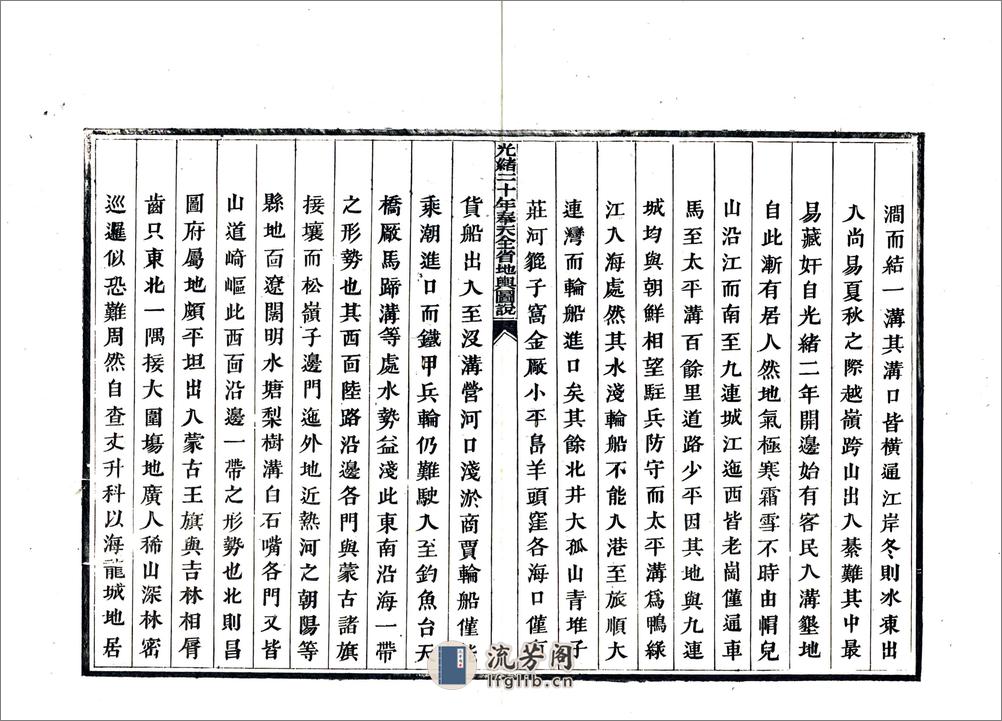 澗而結一溝其溝口皆橫通江岸冬則冰凍出
入尚易夏秋之際越嶺跨山出入綦難其中最
易藏奸自光緒二年開邊始有客民入溝墾地
自此漸有居人然地氣極寒霜雪不時由帽兒
山沿江而南至九連城江迤西皆老崗僅通車
馬至太平溝百餘里道路少平因其地與九連
城均與朝鮮相望駐兵防守而太平溝爲鴨綠
江入海處然其水淺輪船不能入港至旅順大
連灣而輪船進口矣其餘北井大孤山青堆子
莊河貔子窩金厰小平島羊頭窪各海口僅有
光緒二十年奉天全省地輿圖說
貨船出入至沒溝營河口淺淤商賈輪船僅能
乘潮進口而鐵甲兵輪仍難駛入至釣魚台天
橋厰馬蹄溝等處水勢益淺此東南沿海一帶
之形勢也其西面陸路沿邊各門與蒙古諸旗
接壤而松嶺子邊門迤外地近熱河之朝陽等
縣地面遼闊明水塘梨樹溝白石嘴各門又皆
山道崎嶇此西面沿邊一帶之形勢也北則昌
圖府屬地頗平坦出入蒙古王旗與吉林相脣
齒只東北一隅接大圍塲地廣人稀山深林密
巡邏似恐難周然自查丈升科以海龍城地居
流芳阁
lfglib.cn